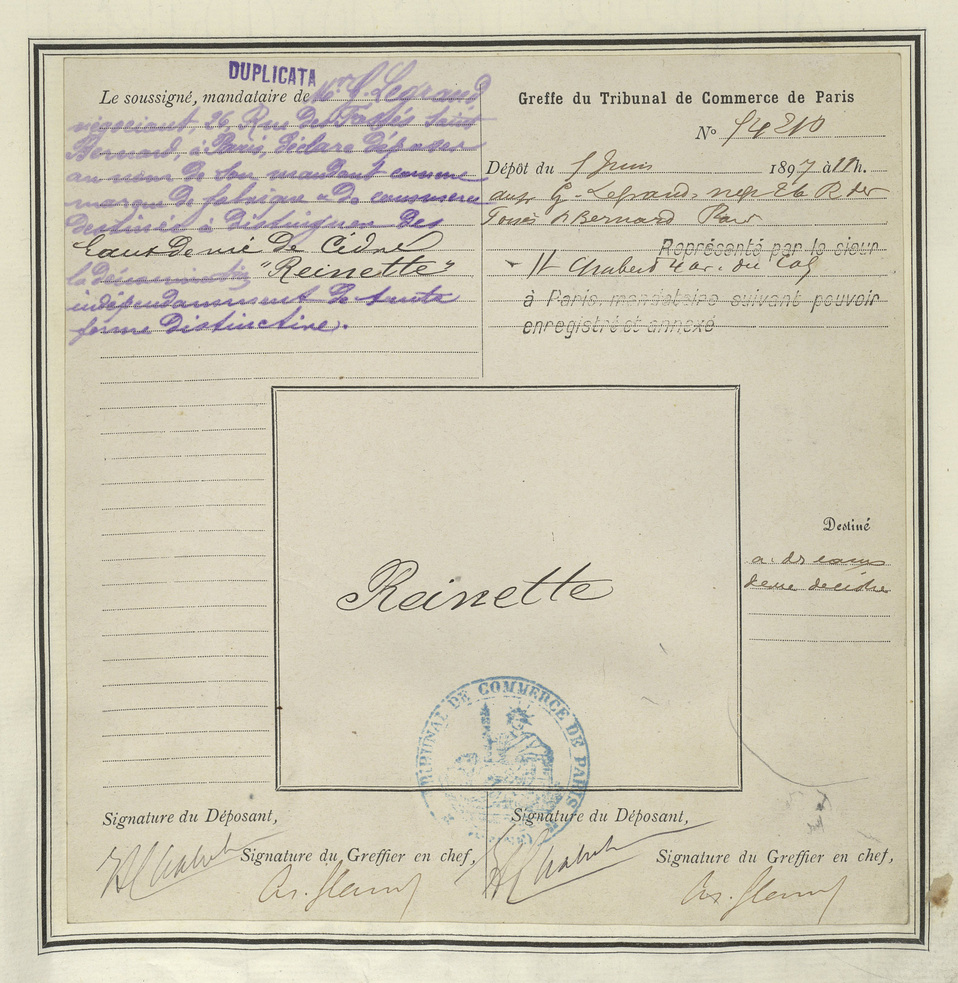 DUPLICATA
Le soussigné, mandataire de Mr G. Legrand
négociant, 26, Rue des Fossés Saint
Bernard, à Paris, déclare déposer
au nom de son mandant comme
marque de fabrique & de commerce
destinée à distinguer des
Eaux de vie de Cidre
la dénomination "Reinette"
indépendamment de toute
forme distinctive.
Greffe du Tribunal de Commerce de Paris
No 54210
Dépôt du 5 Juin 1897 à 11 h.
G. Legrand, neg 26 R des
Fossés St Bernard Paris
Représenté par le sieur
H Chabert 4 av. du
à Paris, mandataire suivant pouvoir
enregistré et annexé
Reinette
Destiné
à des eaux
de vie de cidre
TRIBUNAL DE COMMERCE DE PARIS
Signature du Déposant,
Signature du Greffier en chef,
Signature du Déposant,
Signature du Greffier en chef,